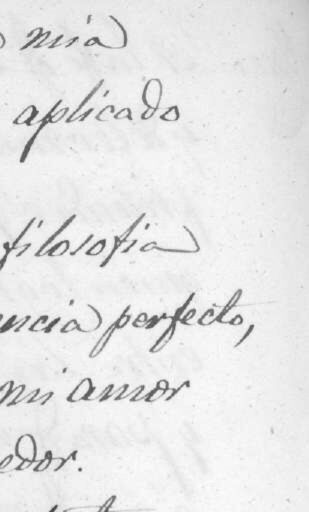 mia
aplicado
filosofia
encia perfecto,
mi amor
edor.